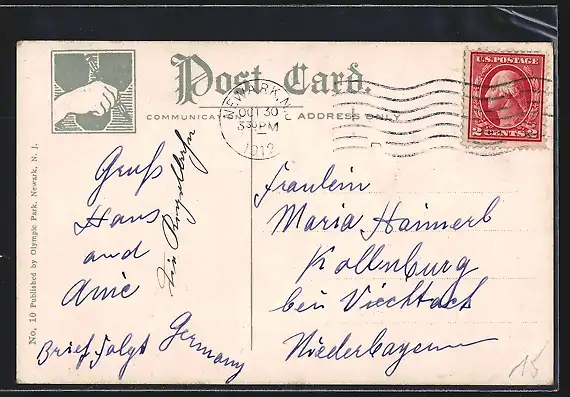 Post Card.
ADDRESS ONLY
NEWARK, N.J.
OCT 30
3 30 PM
1912
U.S. POSTAGE
2 CENTS 2
No. 10 Published by Olympic Park, Newark, N. J.
Gruß
Hans
and
Brief folgt Germany
Fraulein
Maria Haimerl
Kollnburg
bei Viechtach
Niederbayern
15